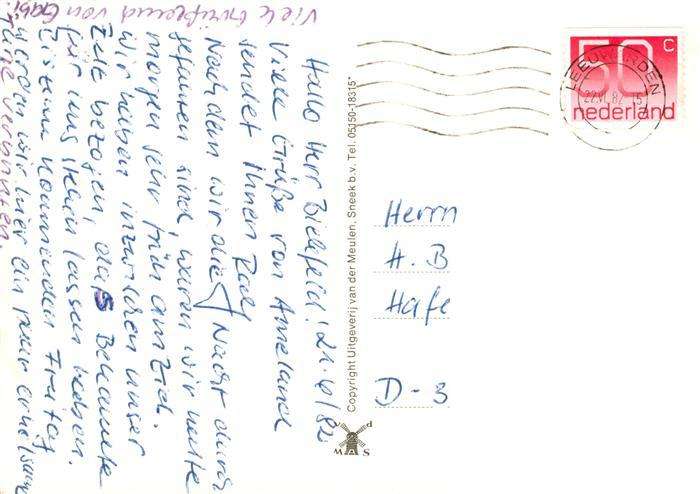 Hallo Herr Bielefeld! 21.6/82
Viele Grüße von Ameland
sendet Ihnen Ralf
Nachdem wir die Nacht durch
gefahren sind, waren wir heute
morgen sehr früh am Ziel.
Wir haben inzwischen unser
Zelt bezogen, daß Bekannte
für uns stehen lassen haben.
Bis zum kommenden Freitag
werden wir hier ein paar erholsame
Tage verbringen.
Viele Grüße und von Gabi
Copyright Uitgeverij van der Meulen, Sneek b.v. Tel. 05150-18315*
LEEUWARDEN
22.VI.82 15
50 C
nederland
Herrn
H. B
Hafe
D-3
V D
W M S